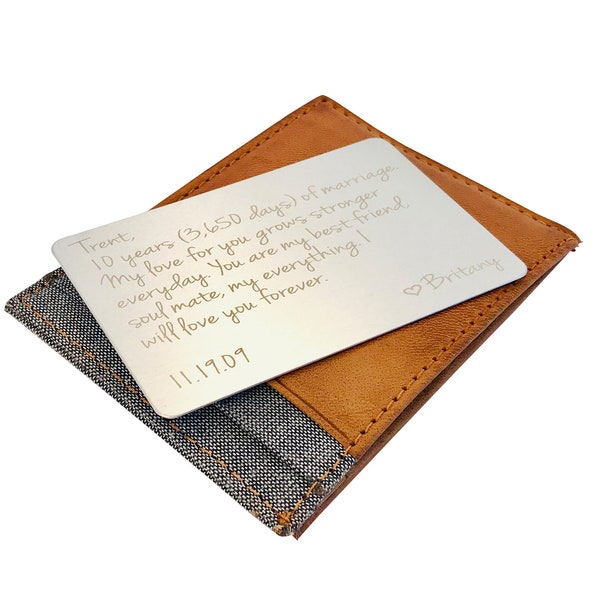 Trent,
10 years (3,650 days) of marriage.
My love for you grows stronger
everyday. You are my best friend,
soul mate, my everything. I
will love you forever.
♡Britany
11.19.09